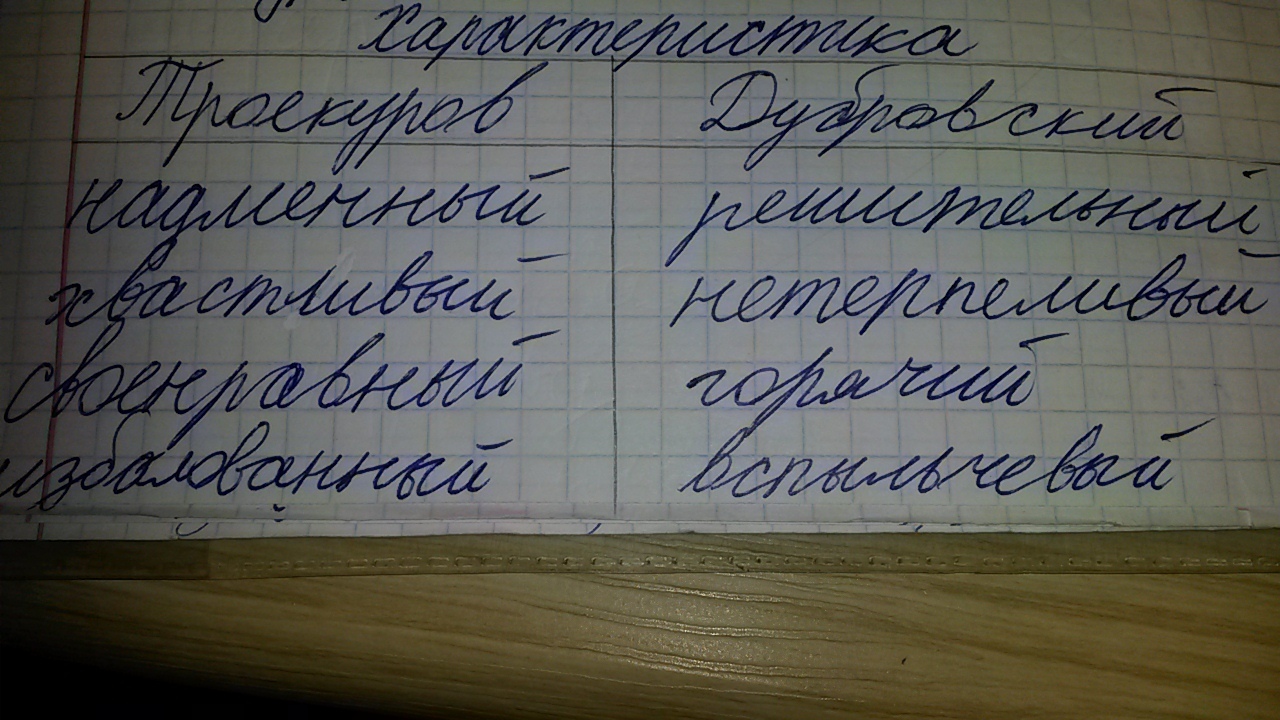 Характеристика
Троекуров Дубровский
надменный решительный
хвастливый нетерпеливый
своенравный горячий
избалованный вспыльчевый